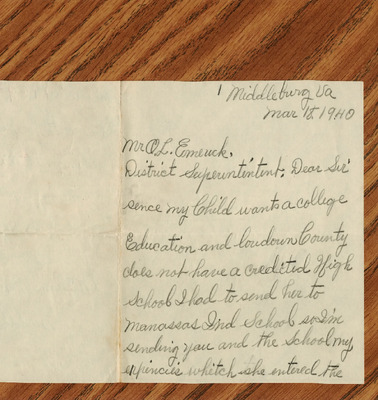 Middleburg Va
Mar 18. 1940
Mr O L. Emerick,
District Superintintent. Dear Sir
sence my Child wants a college
Education and loudoun County
does not have a credited High
School I had to send her to
manassas Ind School so I'm
sending you and the School my
expincies whitch she entered the